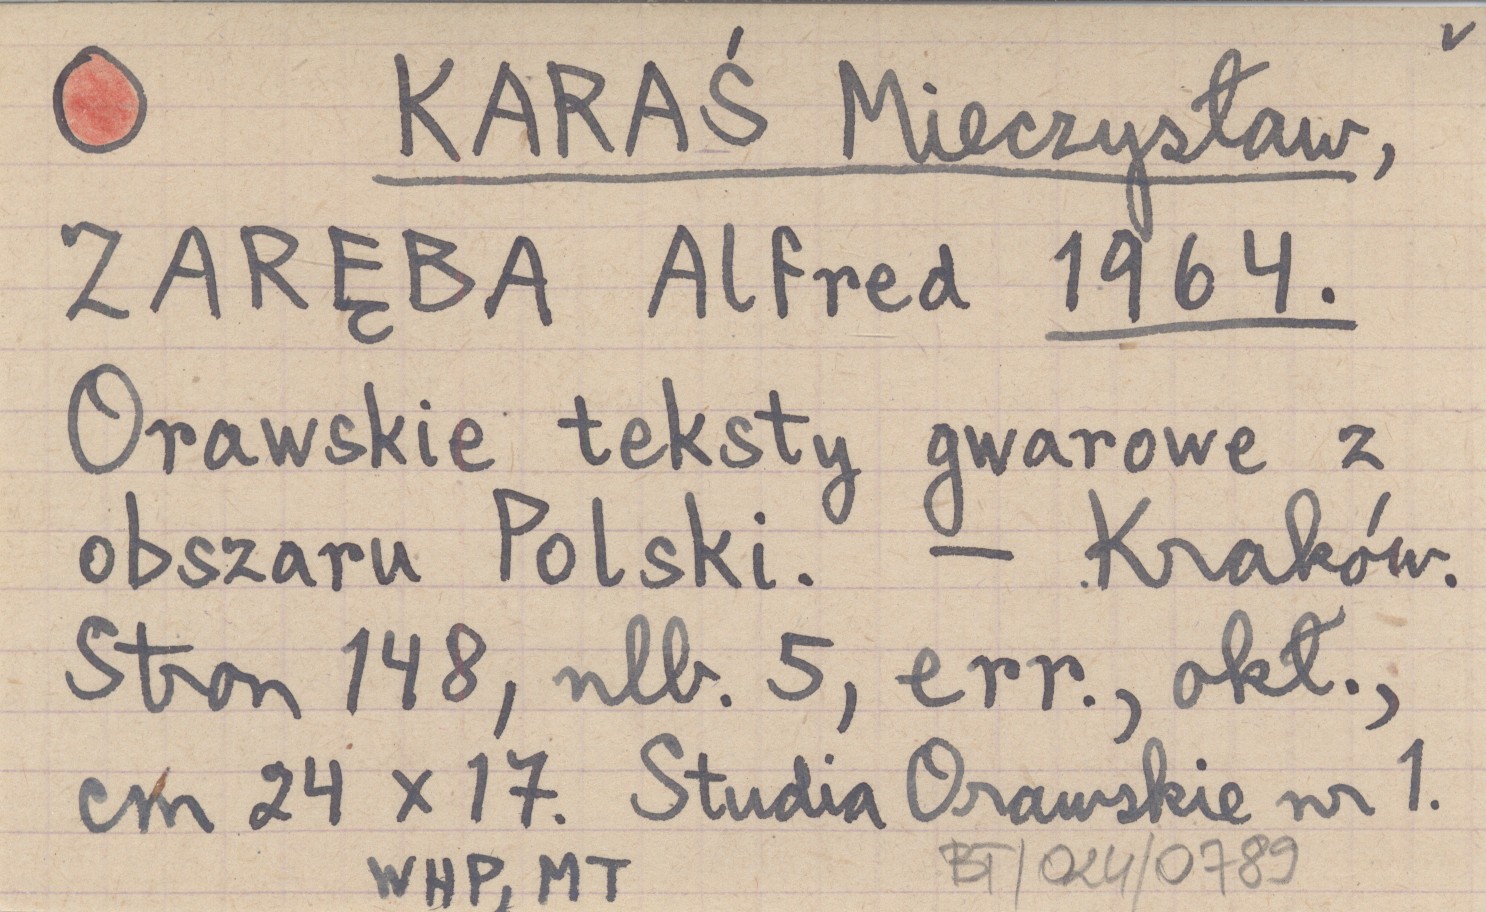 v
KARAŚ Mieczysław,
ZARĘBA Alfred 1964.
Orawskie teksty gwarowe z
obszaru Polski. — Kraków.
Stron 148, nlb. 5, err., okł.,
cm 24 x 17. Studia Orawskie nr 1.
WHP, MT BT/024/0789